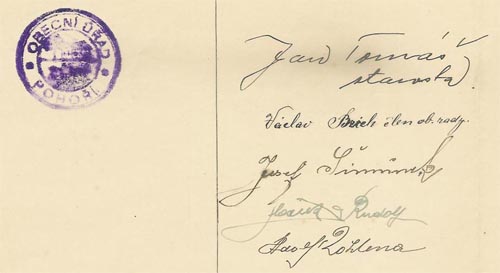 OBECNÍ ÚŘAD
POHOŘÍ
Jan Tomáš
starosta
Václav člen ob. rady
Josef Šimůnek
Rudolf
Adolf Rohlena